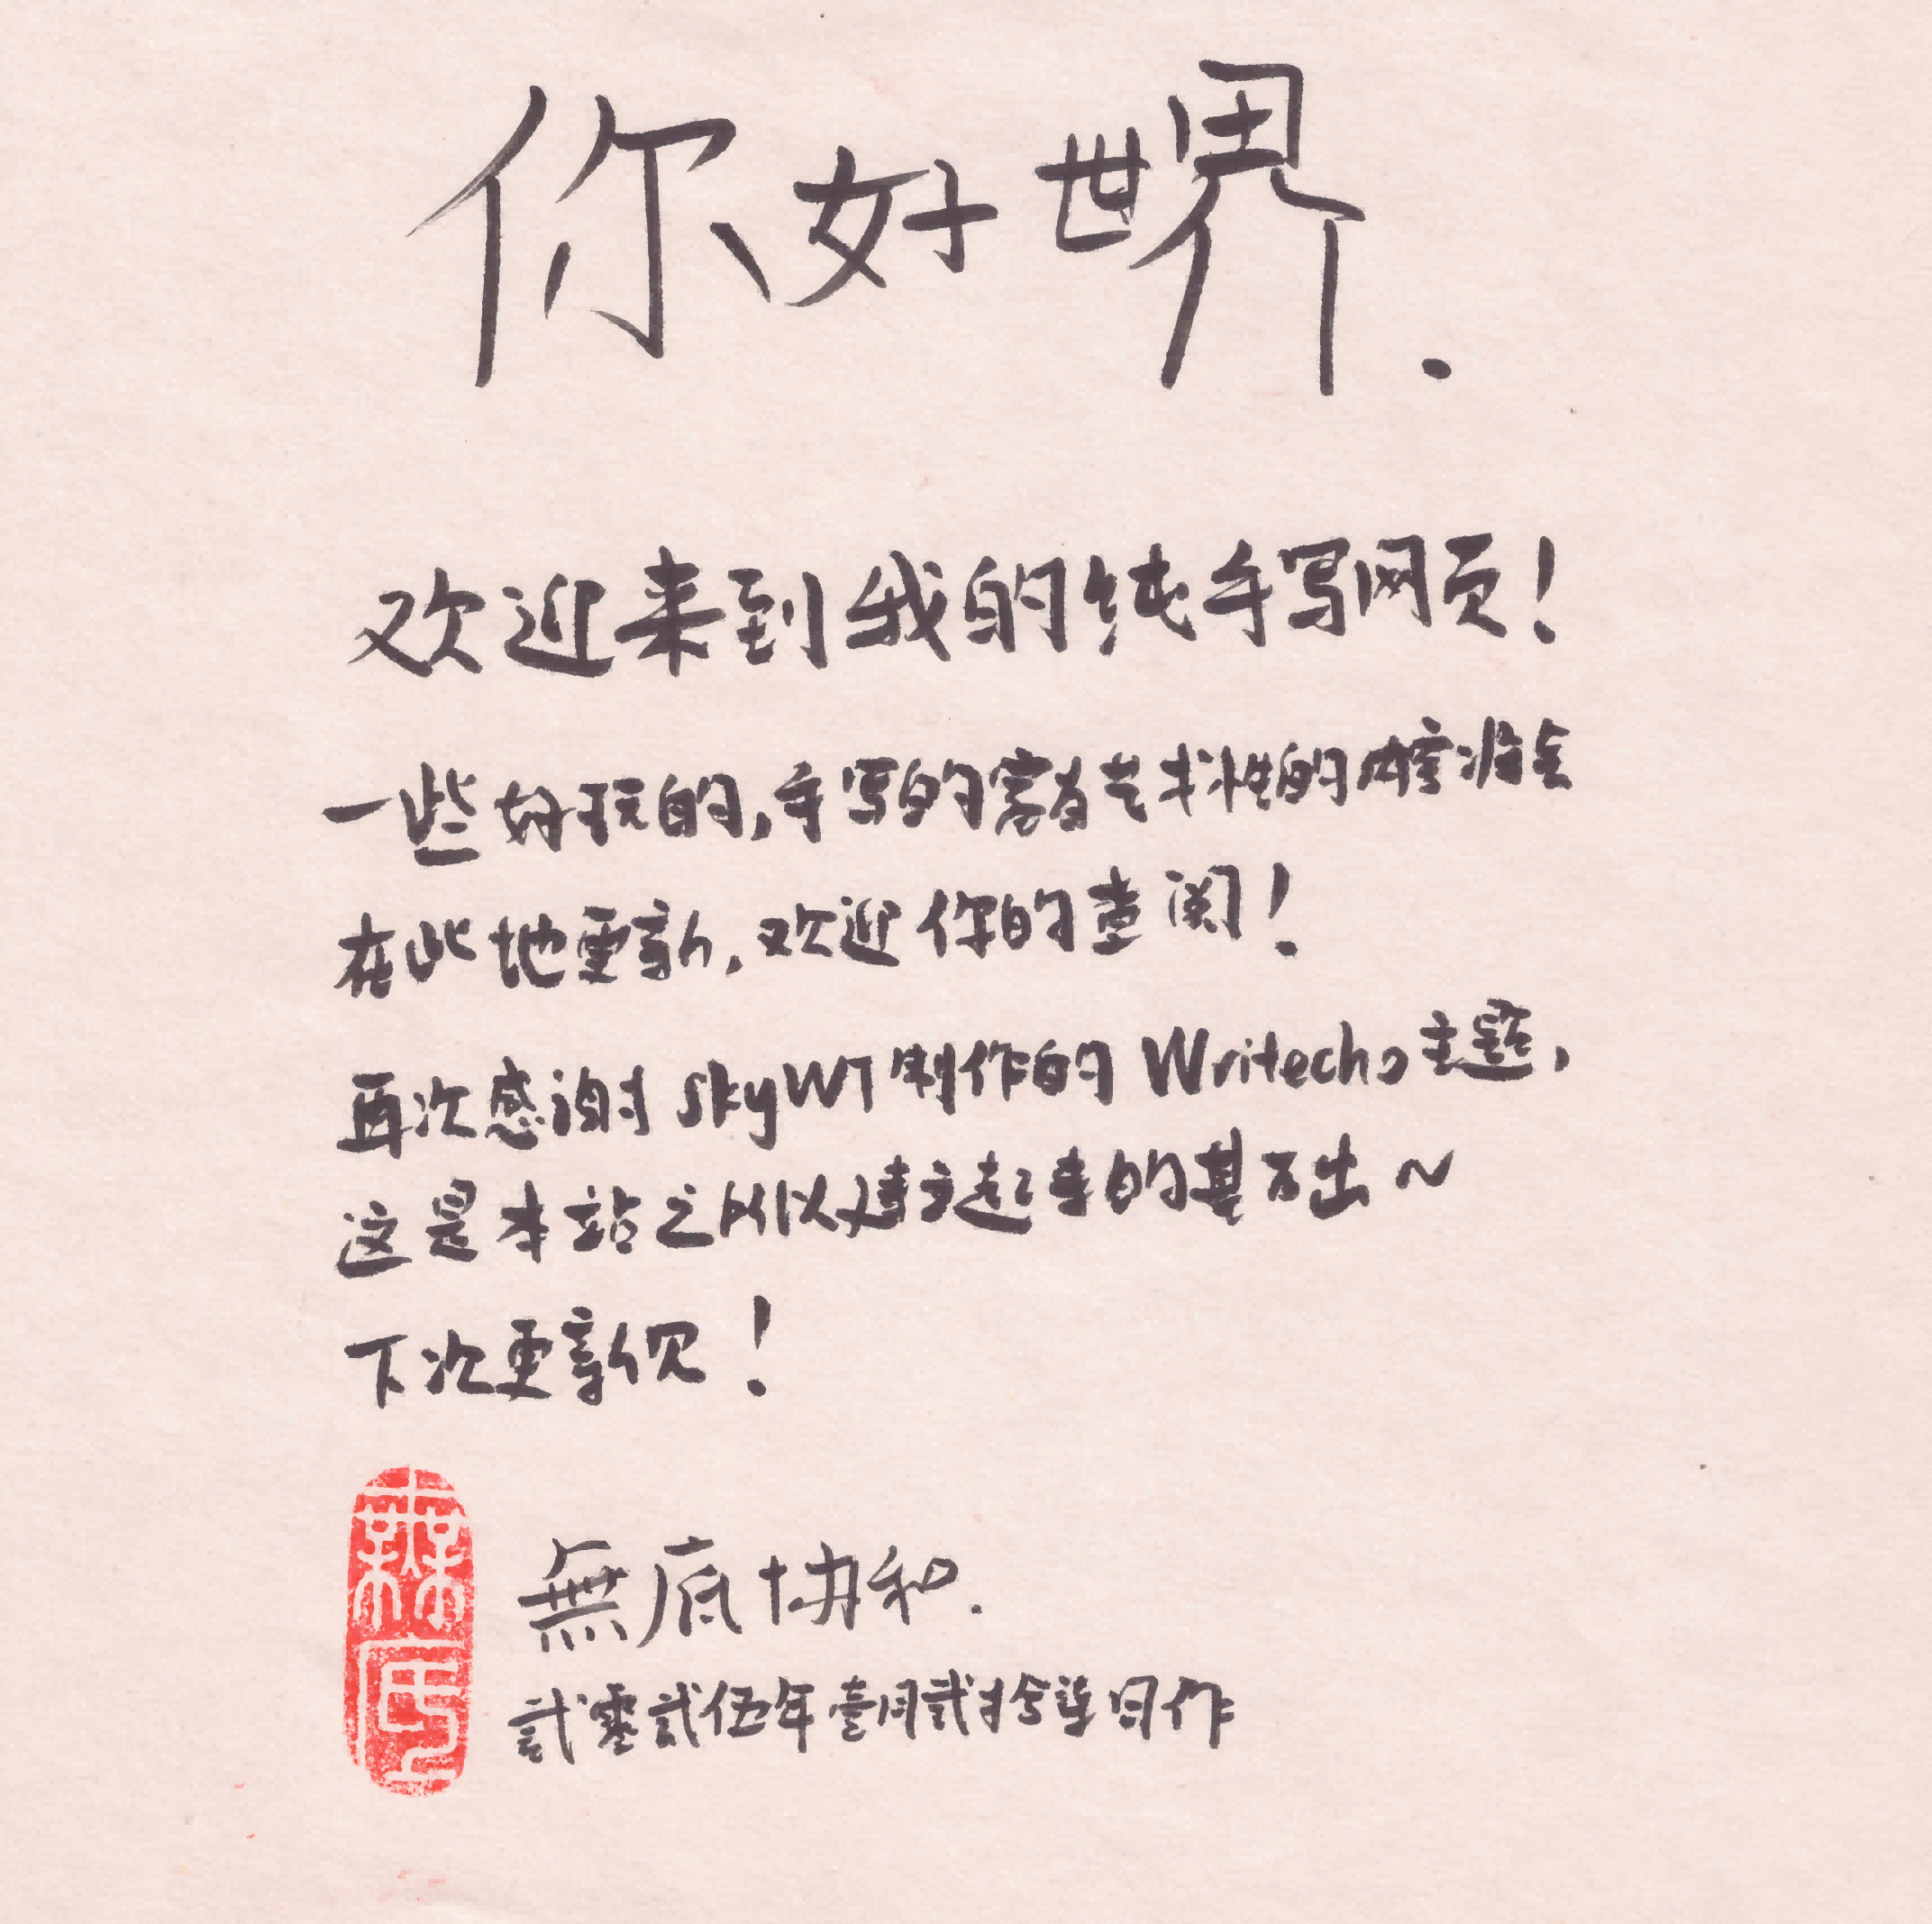 你好世界.
欢迎来到我的纯手写网页!
一些好玩的,手写的富有艺术性的内容将会
在此地更新,欢迎你的查阅!
再次感谢 skyWT 制作的 Writecho 主题,
这是本站之所以建立起来的基础~
下次更新见!
無底
無底协和.
贰零贰伍年壹月贰拾日作